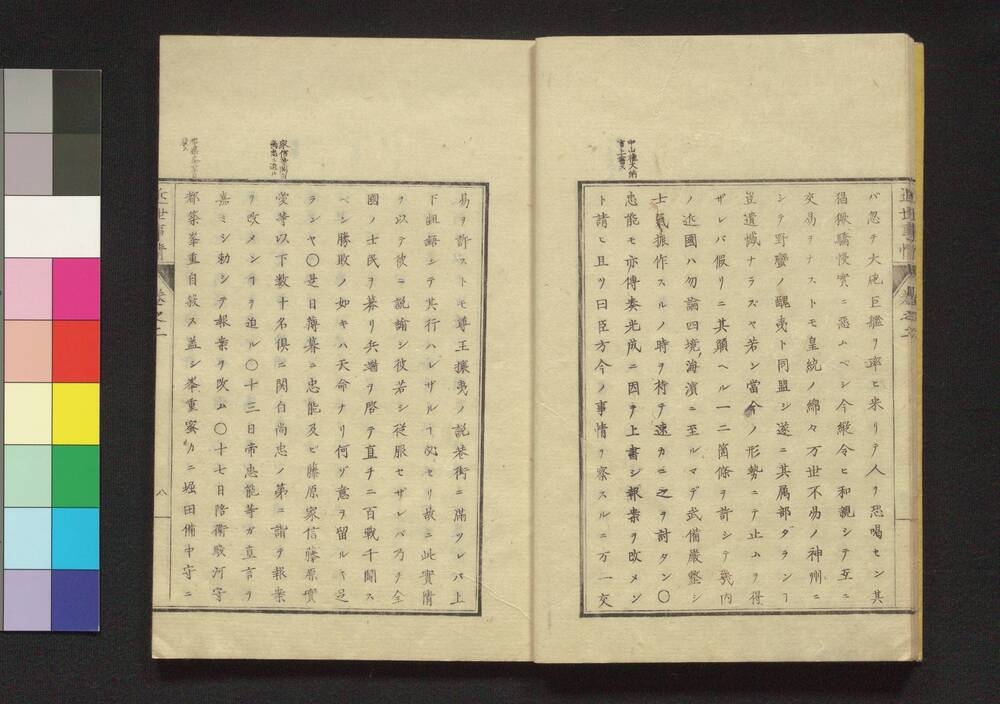 近世事情
卷之二
バ忽チ大砲巨艦ヲ率ヒ来リテ人ヲ恐喝セン其
猖獗驕慢実ニ悪ムベシ今縦令ヒ和親シテ互ニ
交易ヲナストモ皇統ノ綿々万世不易ノ神州ニ
シテ野蠻ノ醜夷ト同盟シ遂ニ其属部ダランヿ
豈遺憾ナラズヤ若シ當今ノ形勢ニテ止ムヲ得
ザレバ假リニ其願ヘル一二箇條ヲ許シテ畿内
ノ近國ハ勿論四境海濱ニ至ルマデ武備嚴整シ
士氣振作スルノ時ヲ待テ速カニ之ヲ討タン〇
忠能モ亦傳奏光成ニ因テ上書シ報案ヲ改メン
ト請ヒ且ツ曰臣方今ノ事情ヲ察スルニ万一交
中山権大納
言上書ス
易ヲ許ストモ尊王攘夷ノ説巷街ニ滿ツレバ上
下齟齬シテ其行ハレザルヿ必セリ故ニ此實情
ヲ以テ彼ニ説諭シ彼若シ従服セザレバ乃ヲ全
國ノ士民ヲ募リ兵端ヲ啓テ直チニ百戰千闘ス
ベシ勝敗ノ如キハ天命ナリ何ゾ意ヲ留ルヤ足
ランヤ〇是日薄暮ニ忠能及ビ藤原家信藤原實
愛等以下数十名倶ニ関白尚忠ノ第ニ詣ヲ報案
ヲ改メンヿヲ迫ル〇十三日帝忠能等ガ直言ヲ
嘉ミシ勅シテ報案ヲ改ム〇十七日陪衞駿河守
都築峯重自殺ス蓋シ峯重蜜カニ堀田備中守ニ
家信等関白
尚忠ニ迫ル
近世事情
卷之二
八